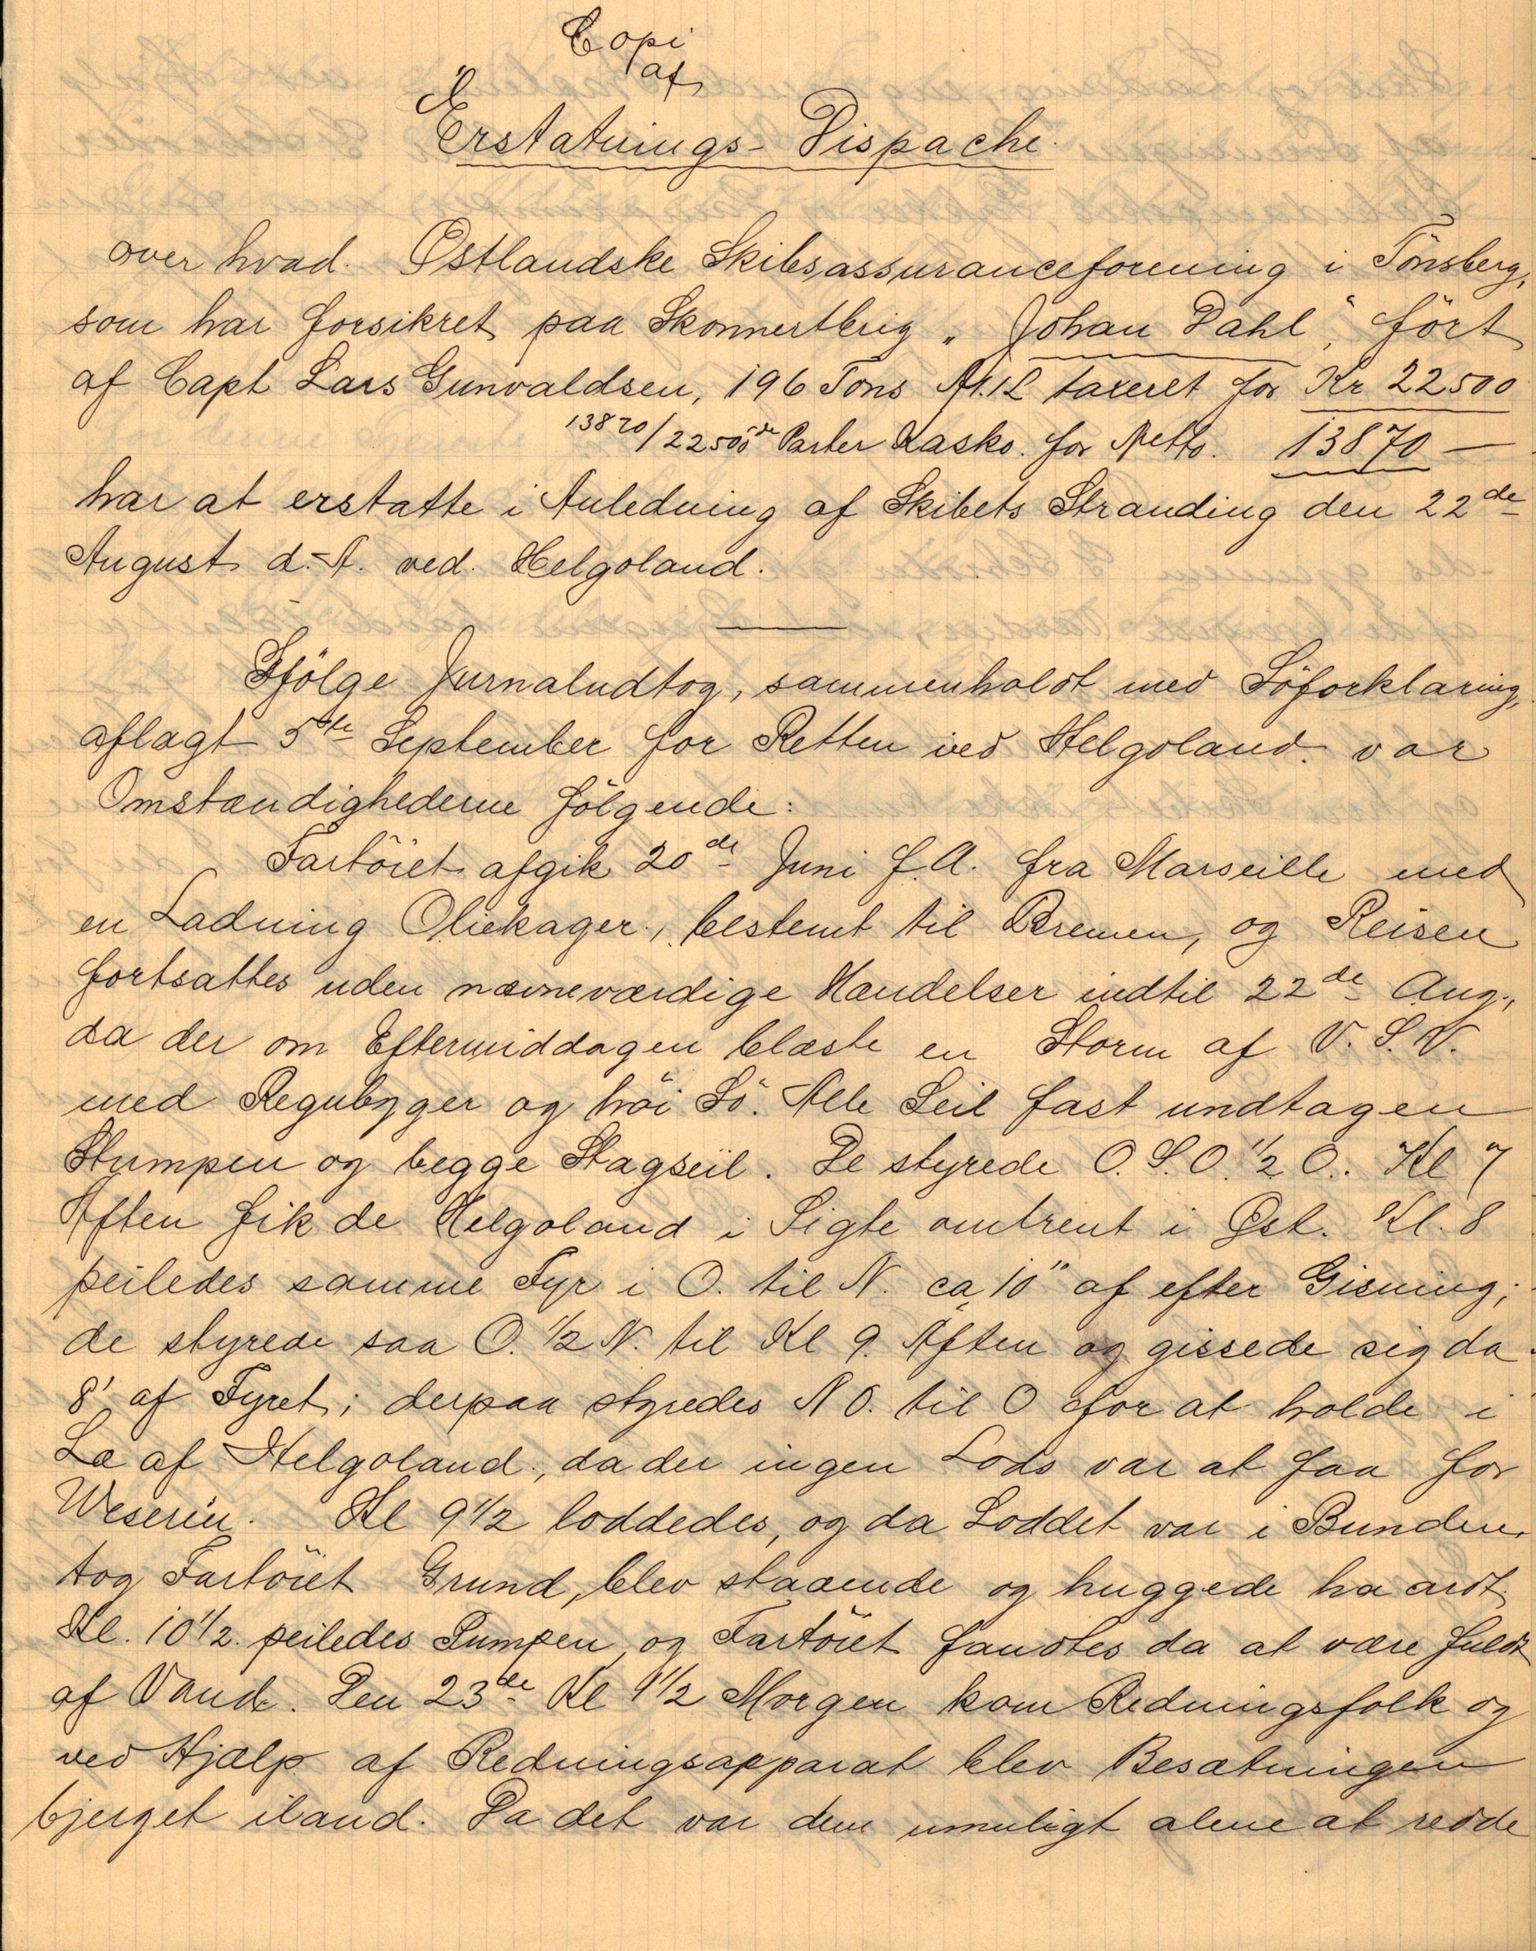 Copi
af
Erstatnings-Dispache.
over hvad Østlandske Skibsassuranceforening i Tönsberg,
som har forsikret paa Skonnertbrig „Johan Dahl", fört
af Capt Lars Gunvaldsen, 196 Tons A1.1L taxeret for Kr 22500
13870/22500de Parter Kasko. for Netto. 13870 —
har at erstatte i Anledning af Skibets Stranding den 22de
August d.A. ved Helgoland.
Ifölge Jurnaludtog, sammenholdt med Söforklaring,
aflagt 5te September for Retten ved Helgoland var
Omstændighederne fölgende:
Fartöiet afgik 20de Juni f.A. fra Marseille med
en Ladning Oliekager, bestemt til Bremen, og Reisen
fortsattes uden nævneværdige Hændelser indtil 22de Aug.,
da der om Eftermiddagen blæste en Storm af V.S.V.
med Regnbyger og höi Sö. Alle Seil fast undtagen
Stumpen og begge Stagseil. De styrede O.S.O. 1/2 O. Kl 7
Aften fik de Helgoland i Sigte omtrent i Øst. Kl. 8
peiledes samme Fyr i O. til N. ca 10" af efter Gisning;
de styrede saa O. 1/2 N. til Kl 9. Aften og gissede sig da
8' af Fyret; derpaa styredes N O. til O for at holde i
Læ af Helgoland, da der ingen Lods var at faa for
Weseren. Kl 9 1/2 loddedes, og da Loddet var i Bunden,
tog Fartöiet Grund, blev staaende og huggede haardt.
Kl. 10 1/2. peiledes Pumpen, og Fartöiet fandtes da at være fuldt
af Vand. Den 23de Kl 9 1/2 Morgen kom Redningsfolk og
ved Hjælp af Redningsapparat blev Besætningen
bjerget iland. Da det var dem umuligt alene at redde